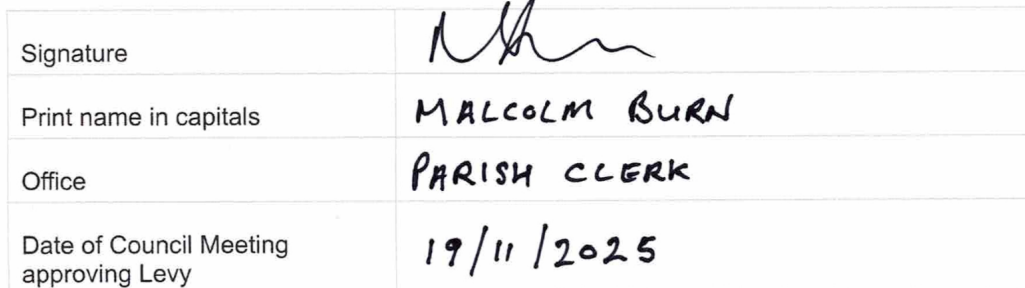 Signature
Print name in capitals MALCOLM BURN
Office PARISH CLERK
Date of Council Meeting
approving Levy 19/11/2025